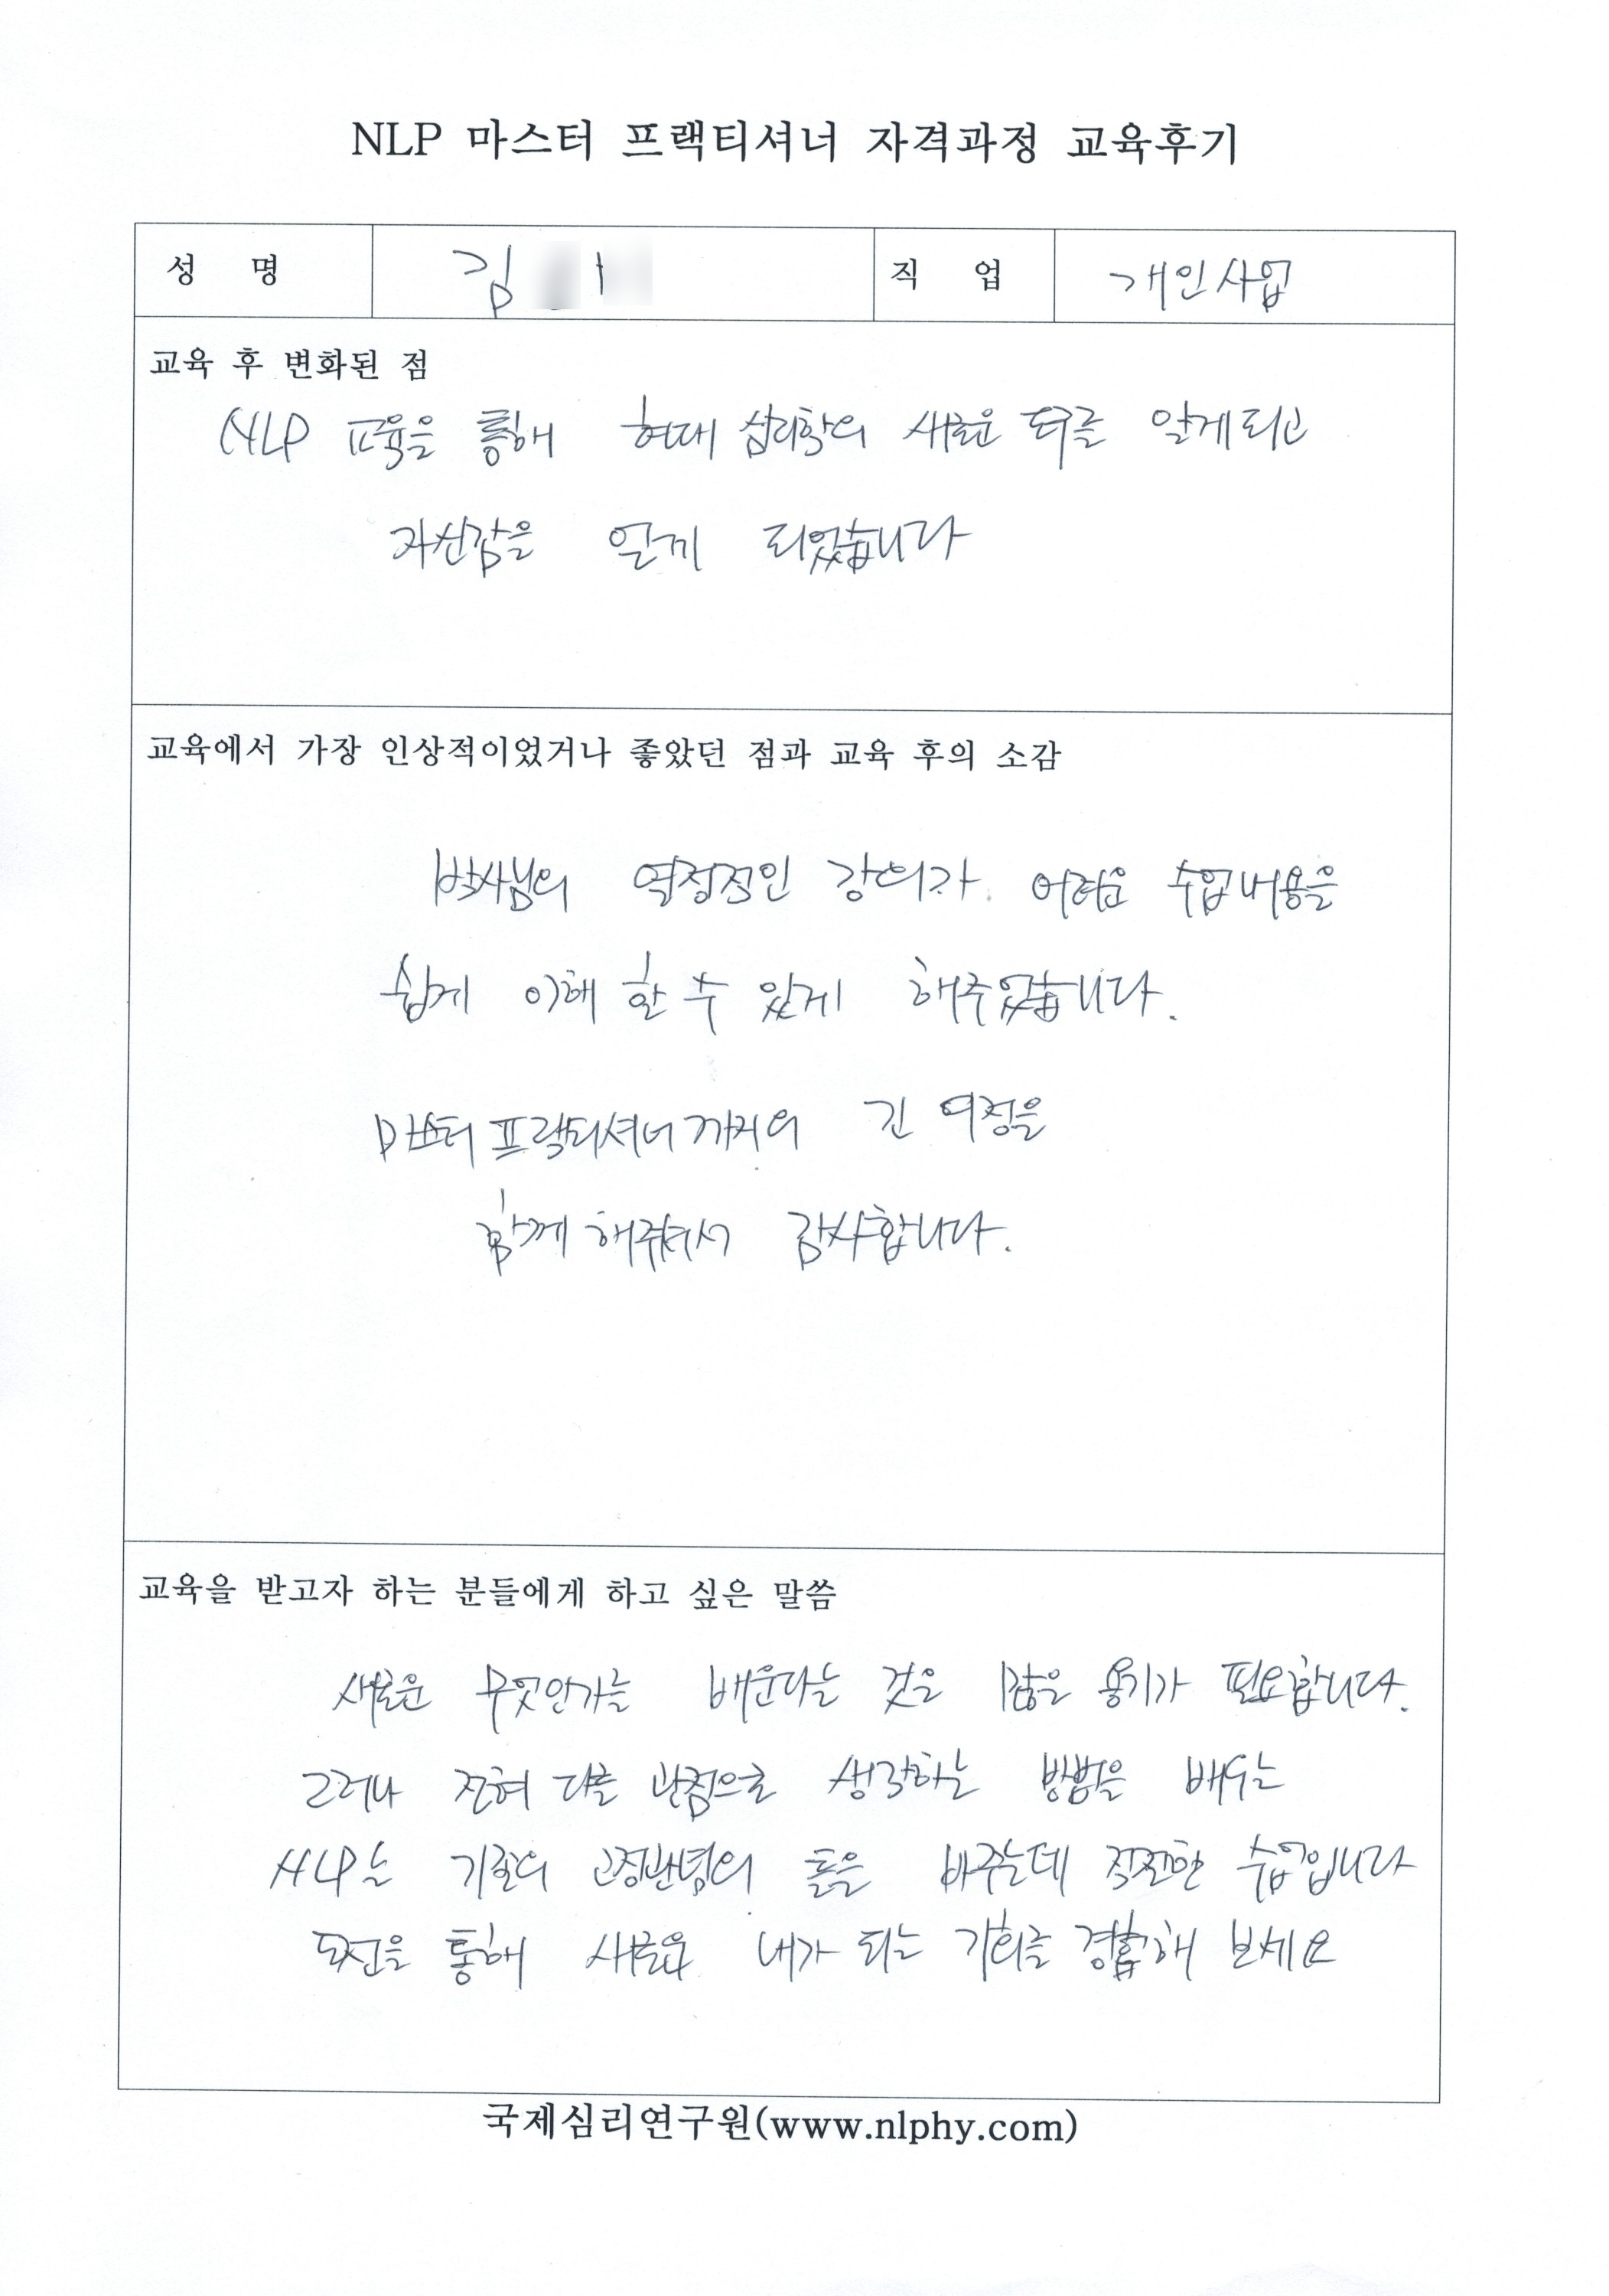 NLP 마스터 프랙티셔너 자격과정 교육후기
성 명 김 직 업 개인사업
교육 후 변화된 점
NLP 교육을 통해 현대 심리학의 새로운 알게되고
자신감을 얻게 되었습니다
교육에서 가장 인상적이었거나 좋았던 점과 교육 후의 소감
박사님의 열정적인 강의가 어려운 수업내용을
쉽게 이해 할 수 있게 해주었습니다.
마스터 프랙티셔너까지의 긴 여정을
함께 해줘서 감사합니다.
교육을 받고자 하는 분들에게 하고 싶은 말씀
새로운 무엇인가를 배운다는 것은 많은 용기가 필요합니다.
그러나 전혀 다른 관점으로 생각하는 방법을 배우는
NLP는 기존의 고정관념의 틀을 바꾸는데 적절한 수업입니다
도전을 통해 새로운 내가 되는 기회를 경험해 보세요
국제심리연구원(www.nlphy.com)